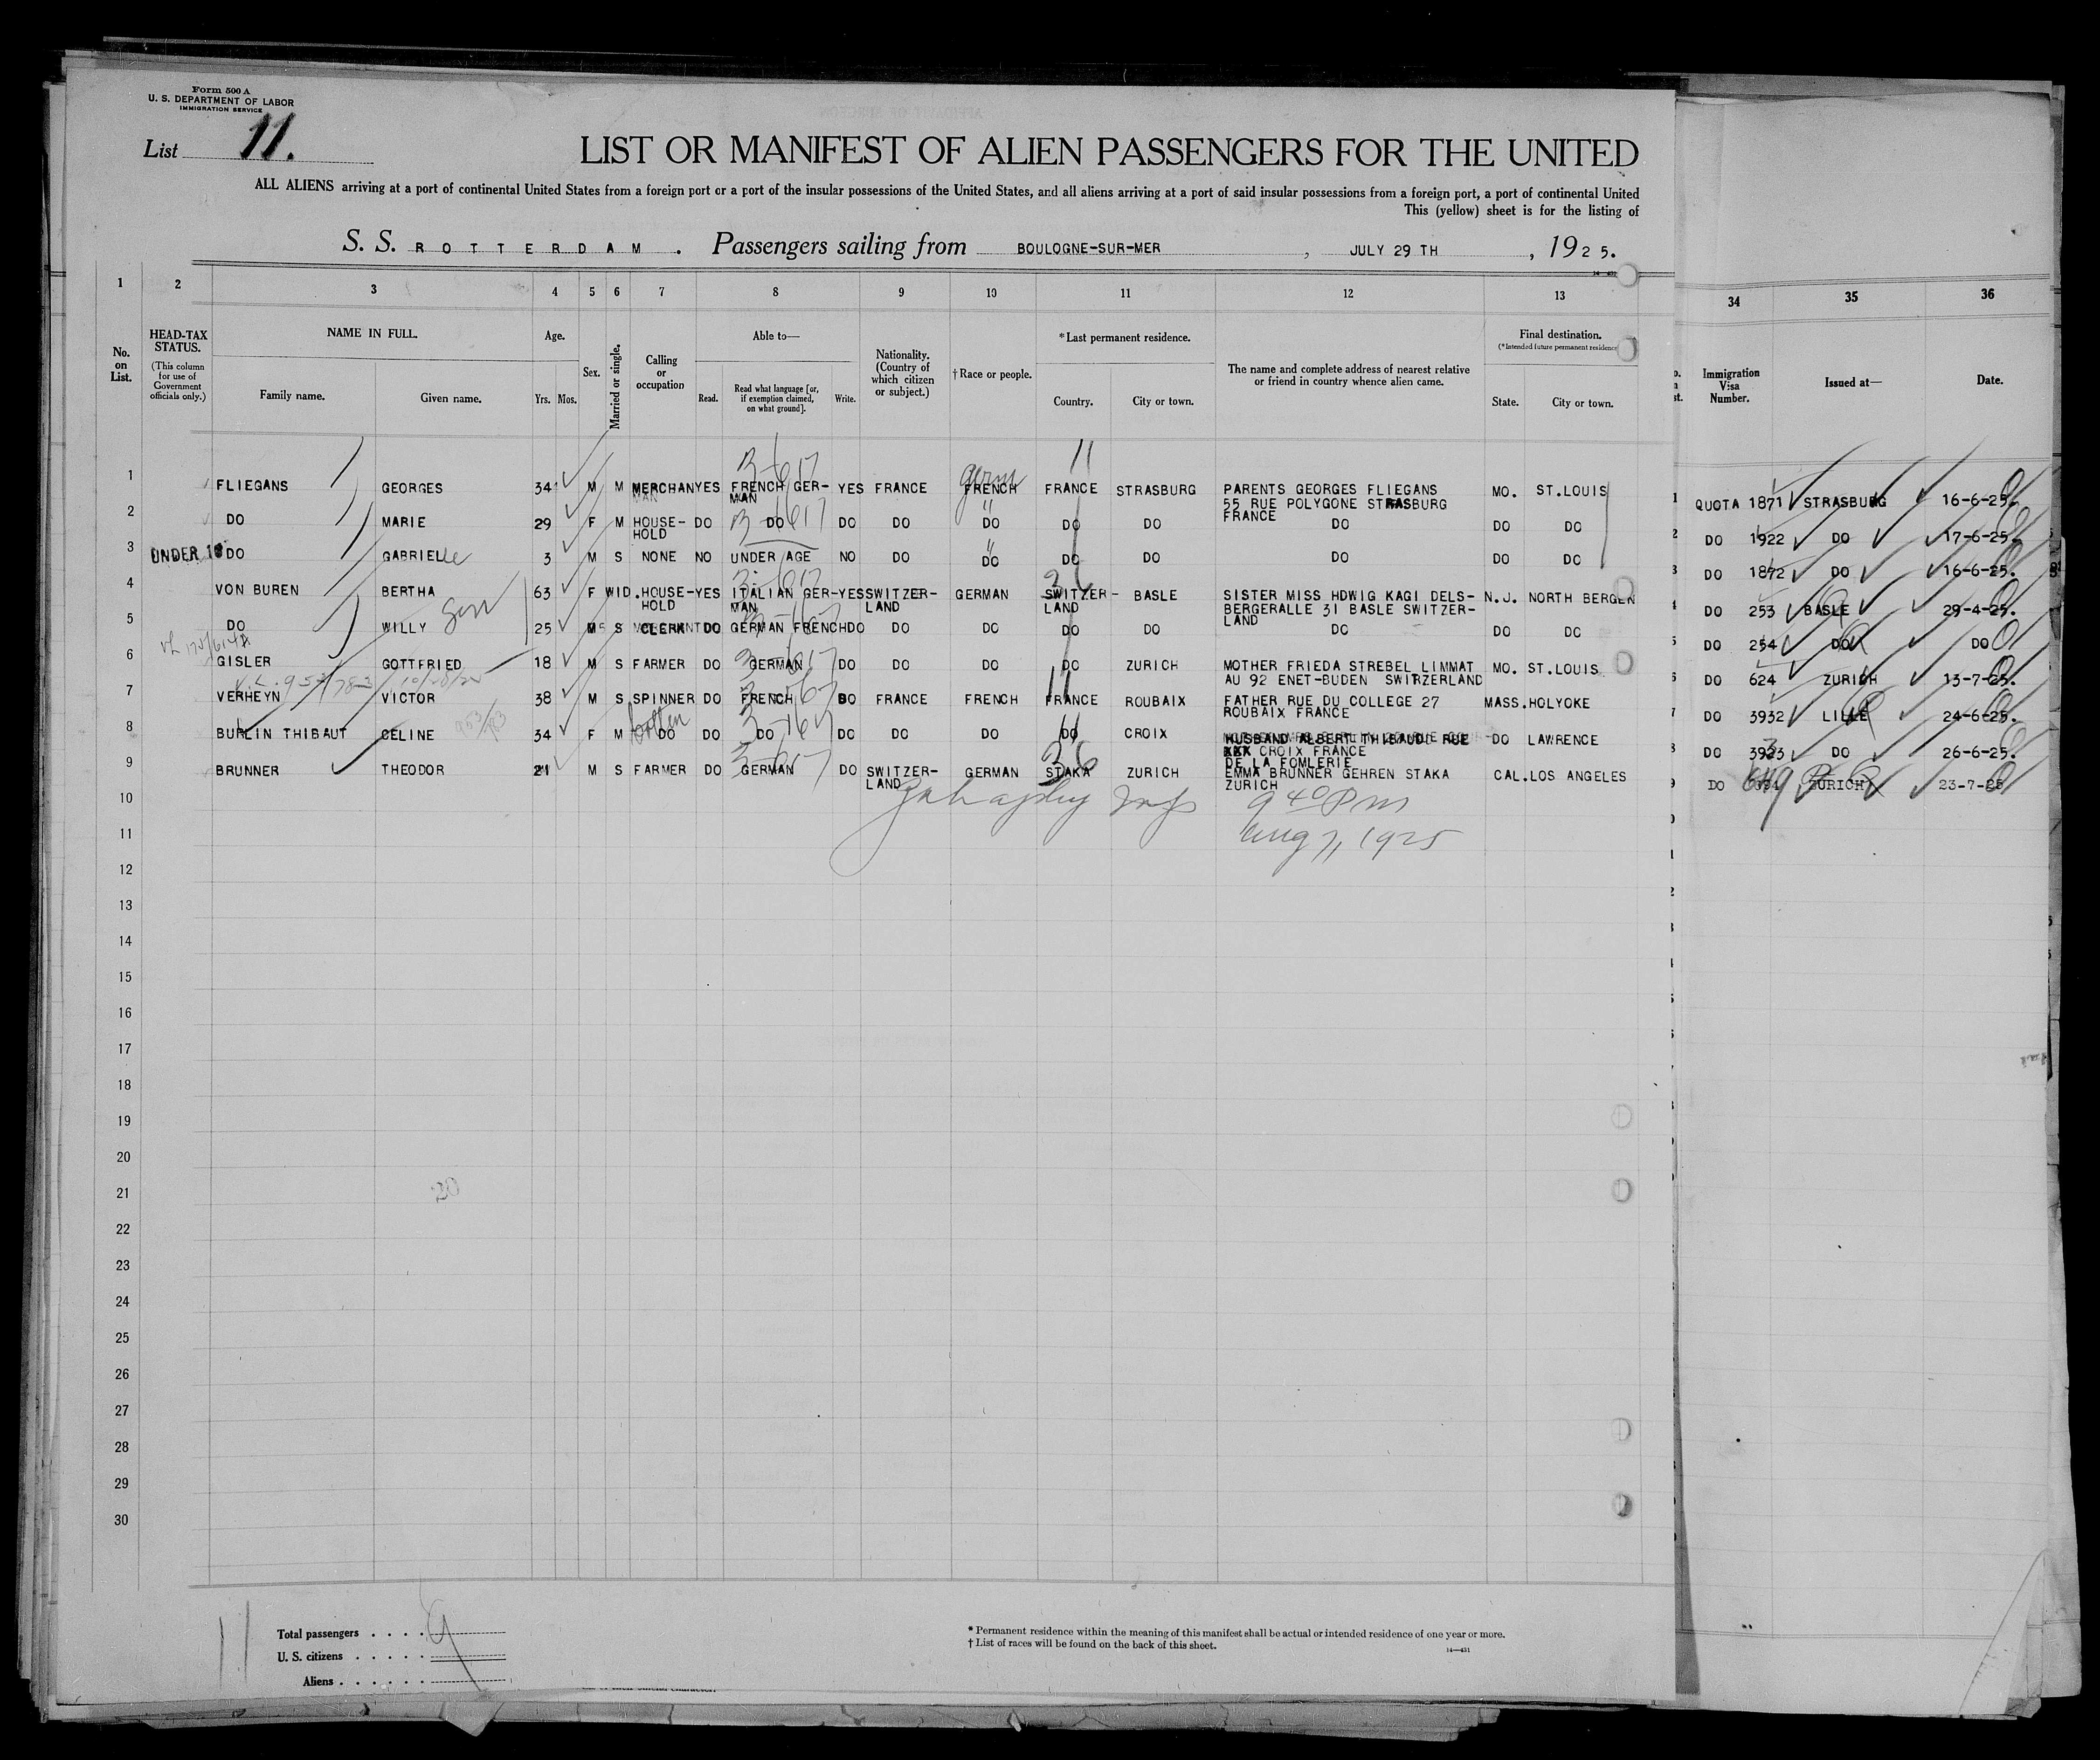 Form 500 A
U. S. DEPARTMENT OF LABOR
IMMIGRATION SERVICE
List 11.
LIST OR MANIFEST OF ALIEN PASSENGERS FOR THE UNITED
ALL ALIENS arriving at a port of continental United States from a foreign port or a port of the insular possessions of the United States, and all aliens arriving at a port of said insular possessions from a foreign port, a port of continental United
This (yellow) sheet is for the listing of
S. S. ROTTERDAM. Passengers sailing from BOULOGNE-SUR-MER, JULY 29 TH, 1925.
1 2 3 4 5 6 7 8 9 10 11 12 13 34 35 36
No. on List.
HEAD-TAX STATUS.
(This column for use of Government officials only.)
NAME IN FULL.
Family name. Given name.
Age.
Yrs. Mos.
Sex.
Married or single.
Calling or occupation
Able to—
Read. Read what language [or, if exemption claimed, on what ground]. Write.
Nationality. (Country of which citizen or subject.)
† Race or people.
* Last permanent residence.
Country. City or town.
The name and complete address of nearest relative or friend in country whence alien came.
Final destination.
(*Intended future permanent residence
State. City or town.
Immigration Visa Number.
Issued at—
Date.
11
1 FLIEGANS GEORGES 34 M M MERCHAN YES FRENCH GER- YES FRANCE FRENCH germ FRANCE STRASBURG PARENTS GEORGES FLIEGANS MO. ST.LOUIS QUOTA 1871 STRASBURG 16-6-25.
MAN 55 RUE POLYGONE STRASBURG
FRANCE
2 DO MARIE 29 F M HOUSE- DO DO DO DO DO DO DO DO DO DO DO 1922 DO 17-6-25.
HOLD
3 UNDER 16 DO GABRIELLE 3 M S NONE NO UNDER AGE NO DO DO DO DO DO DO DO DO 1872 DO 16-6-25.
4 VON BUREN BERTHA 63 F WID. HOUSE- YES ITALIAN GER- YES SWITZER- GERMAN SWITZER- BASLE SISTER MISS HDWIG KAGI DELS- N.J. NORTH BERGEN DO 253 BASLE 29-4-25.
HOLD MAN LAND LAND BERGERALLE 31 BASLE SWITZER-
LAND
5 DO WILLY son 25 M S CLERK DO GERMAN FRENCH DO DO DO DO DO DO DO DO DO 254 DO DO
6 GISLER GOTTFRIED 18 M S FARMER DO GERMAN DO DO DO DO ZURICH MOTHER FRIEDA STREBEL LIMMAT MO. ST.LOUIS. DO 624 ZURICH 13-7-25.
AU 92 ENET-BUDEN SWITZERLAND
7 VERHEYN VICTOR 38 M S SPINNER DO FRENCH DO FRANCE FRENCH FRANCE ROUBAIX FATHER RUE DU COLLEGE 27 MASS. HOLYOKE DO 3932 LILLE 24-6-25.
ROUBAIX FRANCE
8 BURLIN THIBAUT CELINE 34 F M DO DO DO DO DO DO DO CROIX HUSBAND ALBERT THIBAUD RUE DO LAWRENCE DO 3923 DO 26-6-25.
XXX CROIX FRANCE
DE LA FOMLERIE
9 BRUNNER THEODOR 21 M S FARMER DO GERMAN DO SWITZER- GERMAN STAKA ZURICH EMMA BRUNNER GEHREN STAKA CAL. LOS ANGELES DO 649 ZURICH 23-7-25
LAND ZURICH
10 9 40 Pm
11 Aug 7, 1925
12
13
14
15
16
17
18
19
20
21 20
22
23
24
25
26
27
28
29
30
Total passengers . . . . 9
U. S. citizens . . . . .
Aliens . . . . . .
* Permanent residence within the meaning of this manifest shall be actual or intended residence of one year or more.
† List of races will be found on the back of this sheet.
14—431